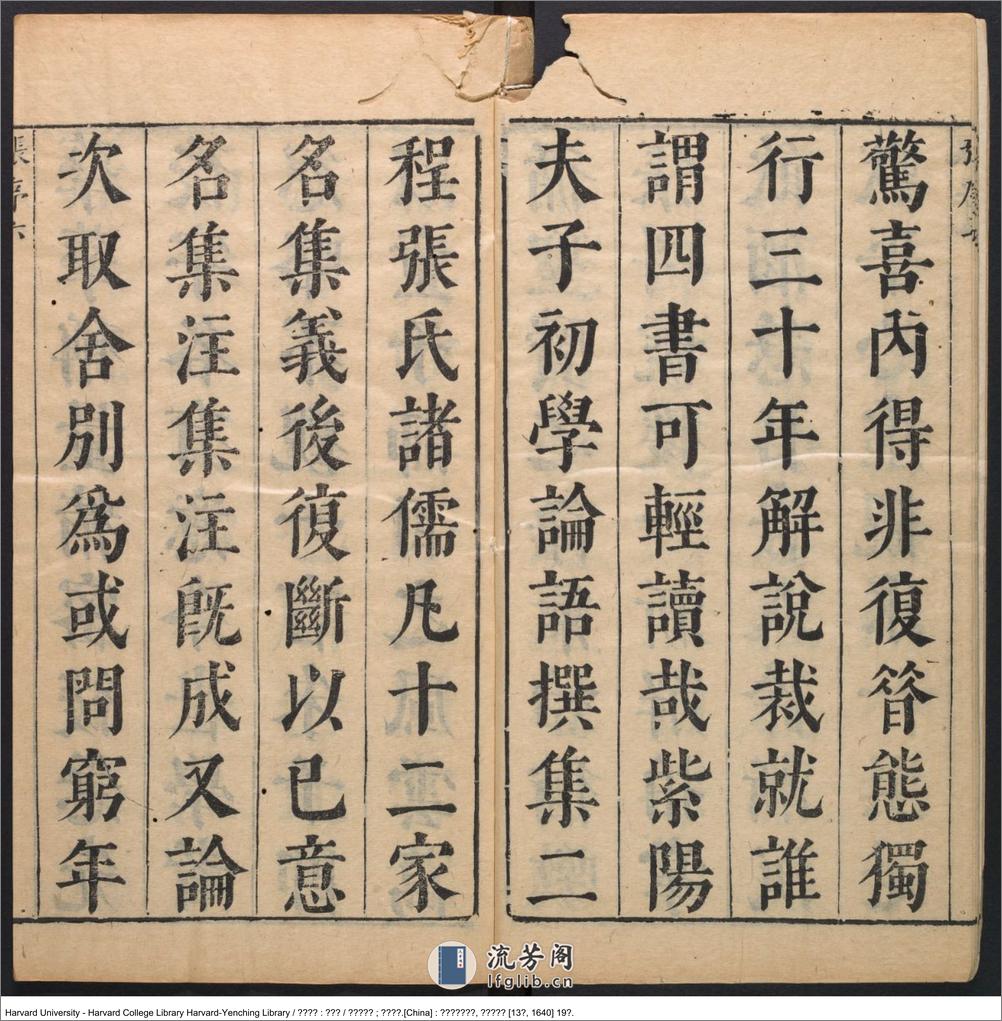 驚喜內得非復眢態獨
行三十年解說裁就誰
謂四書可輕讀哉紫陽
夫子初學論語撰集二
程張氏諸儒凡十二家
名集義後復斷以已意
名集注集注旣成又論
次取舍別爲或問窮年
張序六
流芳阁
lfglib.cn
Harvard University - Harvard College Library Harvard-Yenching Library / ???? : ??? / ????? ; ????.[China] : ???????, ????? [13?, 1640] 19?.